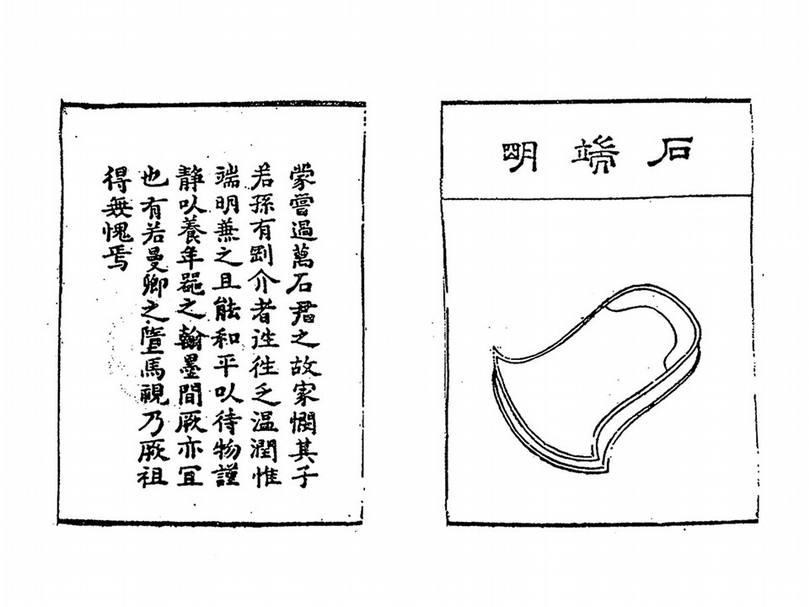 石端明
蒙嘗過萬石君之故家憫其子
若孫有剛介者迬徃乏温潤惟
端明兼之且能和平以待物謹
靜以養年器之翰墨間厥亦宜
也有若曼卿之墮馬視乃厥祖
得無愧焉